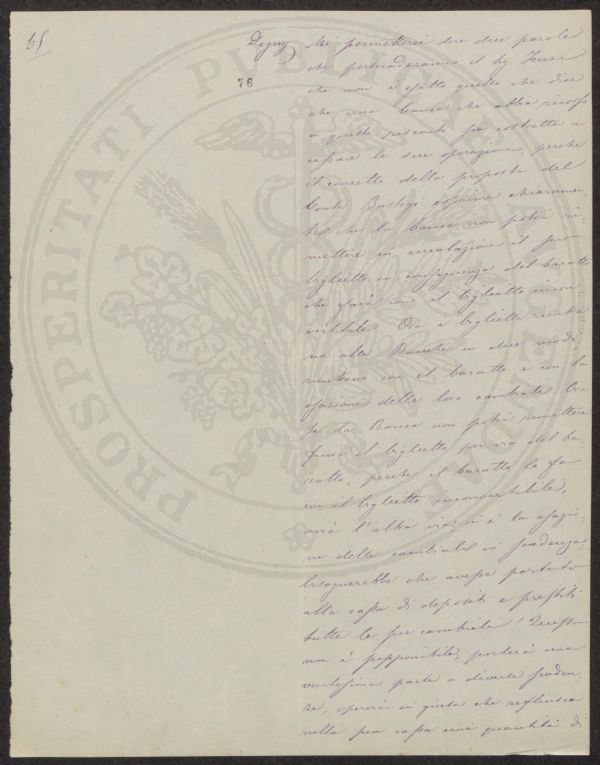 65
76
Digny Mi permetterei dire due parole
che persuaderanno il Sig.
che non è esatto quello che dice
che una banca che abbia
a questo risconto sia costretta a
cessare le sue operazioni, perché
il concetto della proposta del
Conte Bastogi esprime chiaramen
te che la banca non potrà ri-
mettere in circolazione il suo
biglietto in conseguenza del baratto
che farà con il biglietto incon
vertibile. Ora i biglietti rientra
no alle Banche in due modi;
rientrano con il baratto e con la
esazione delle loro cambiali. Ora
se la Banca non potrà rimettere
fuori il biglietto per via del ba
ratto, perché il baratto lo fa
con il biglietto inconvertibile,
avrà l'altra via, vi è la esazio
ne delle cambiali in scadenza,
bisognerebbe che avesse portato
alla cassa di depositi e prestiti
tutte le sue cambiali!
non è supponibile, porterà una
ventesima parte a diverse scaden
ze, opererà in guisa che rifluisca
nella sua cassa una quantità di
PROSPERITATI PUBLICAE AUGENDAE